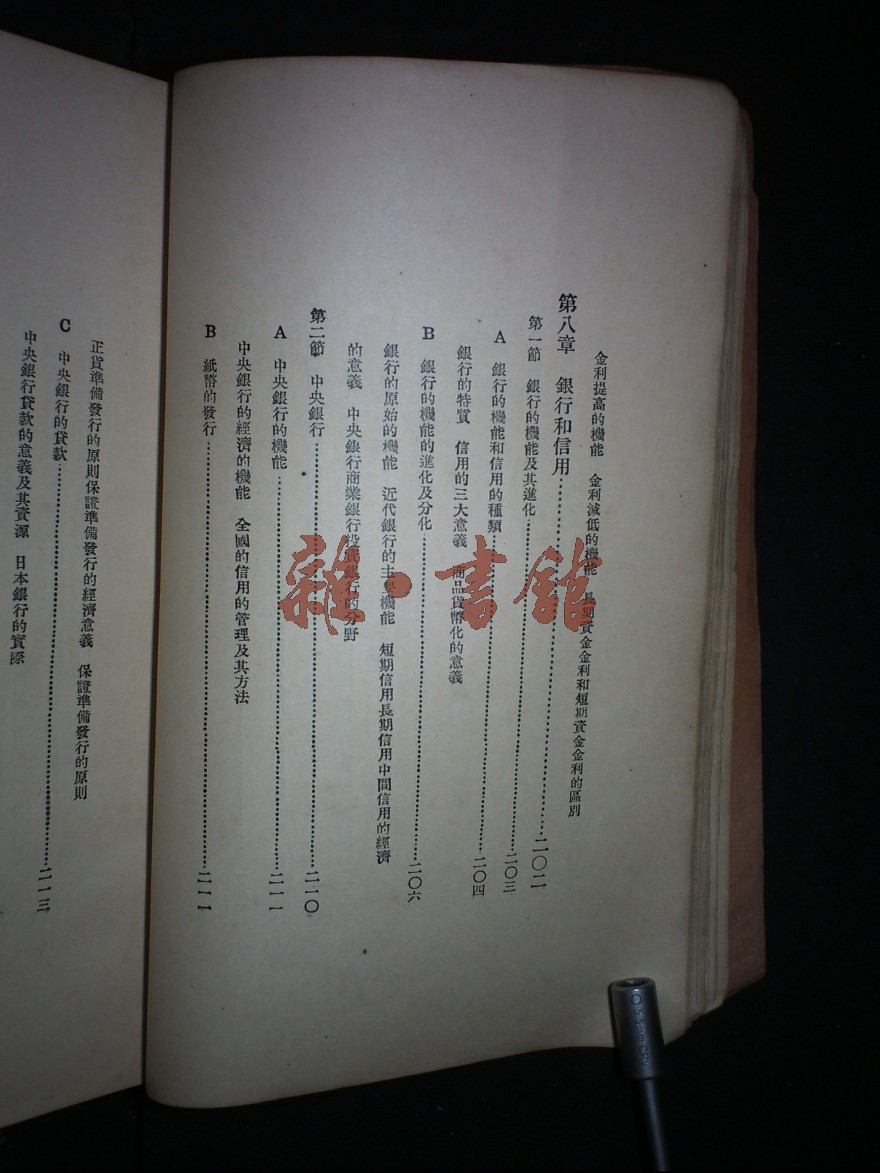 金利提高的機能　金利減低的機能　長期資金金利和短期資金金利的區別
第八章　銀行和信用……二〇二
第一節　銀行的機能及其進化……二〇三
A　銀行的機能和信用的種類……二〇四
銀行的特質　信用的三大意義　商品貨幣化的意義
B　銀行的機能的進化及分化……二〇六
銀行的原始的機能　近代銀行的主要機能　短期信用長期信用中間信用的經濟
的意義　中央銀行商業銀行投資銀行的分野
第二節　中央銀行……二一〇
A　中央銀行的機能……二一一
中央銀行的經濟的機能　全國的信用的管理及其方法
B　紙幣的發行……二一一
正貨準備發行的原則保證準備發行的經濟意義　保證準備發行的原則
C　中央銀行的貸款……二一三
中央銀行貸款的意義及其資源　日本銀行的實際
雜·書館